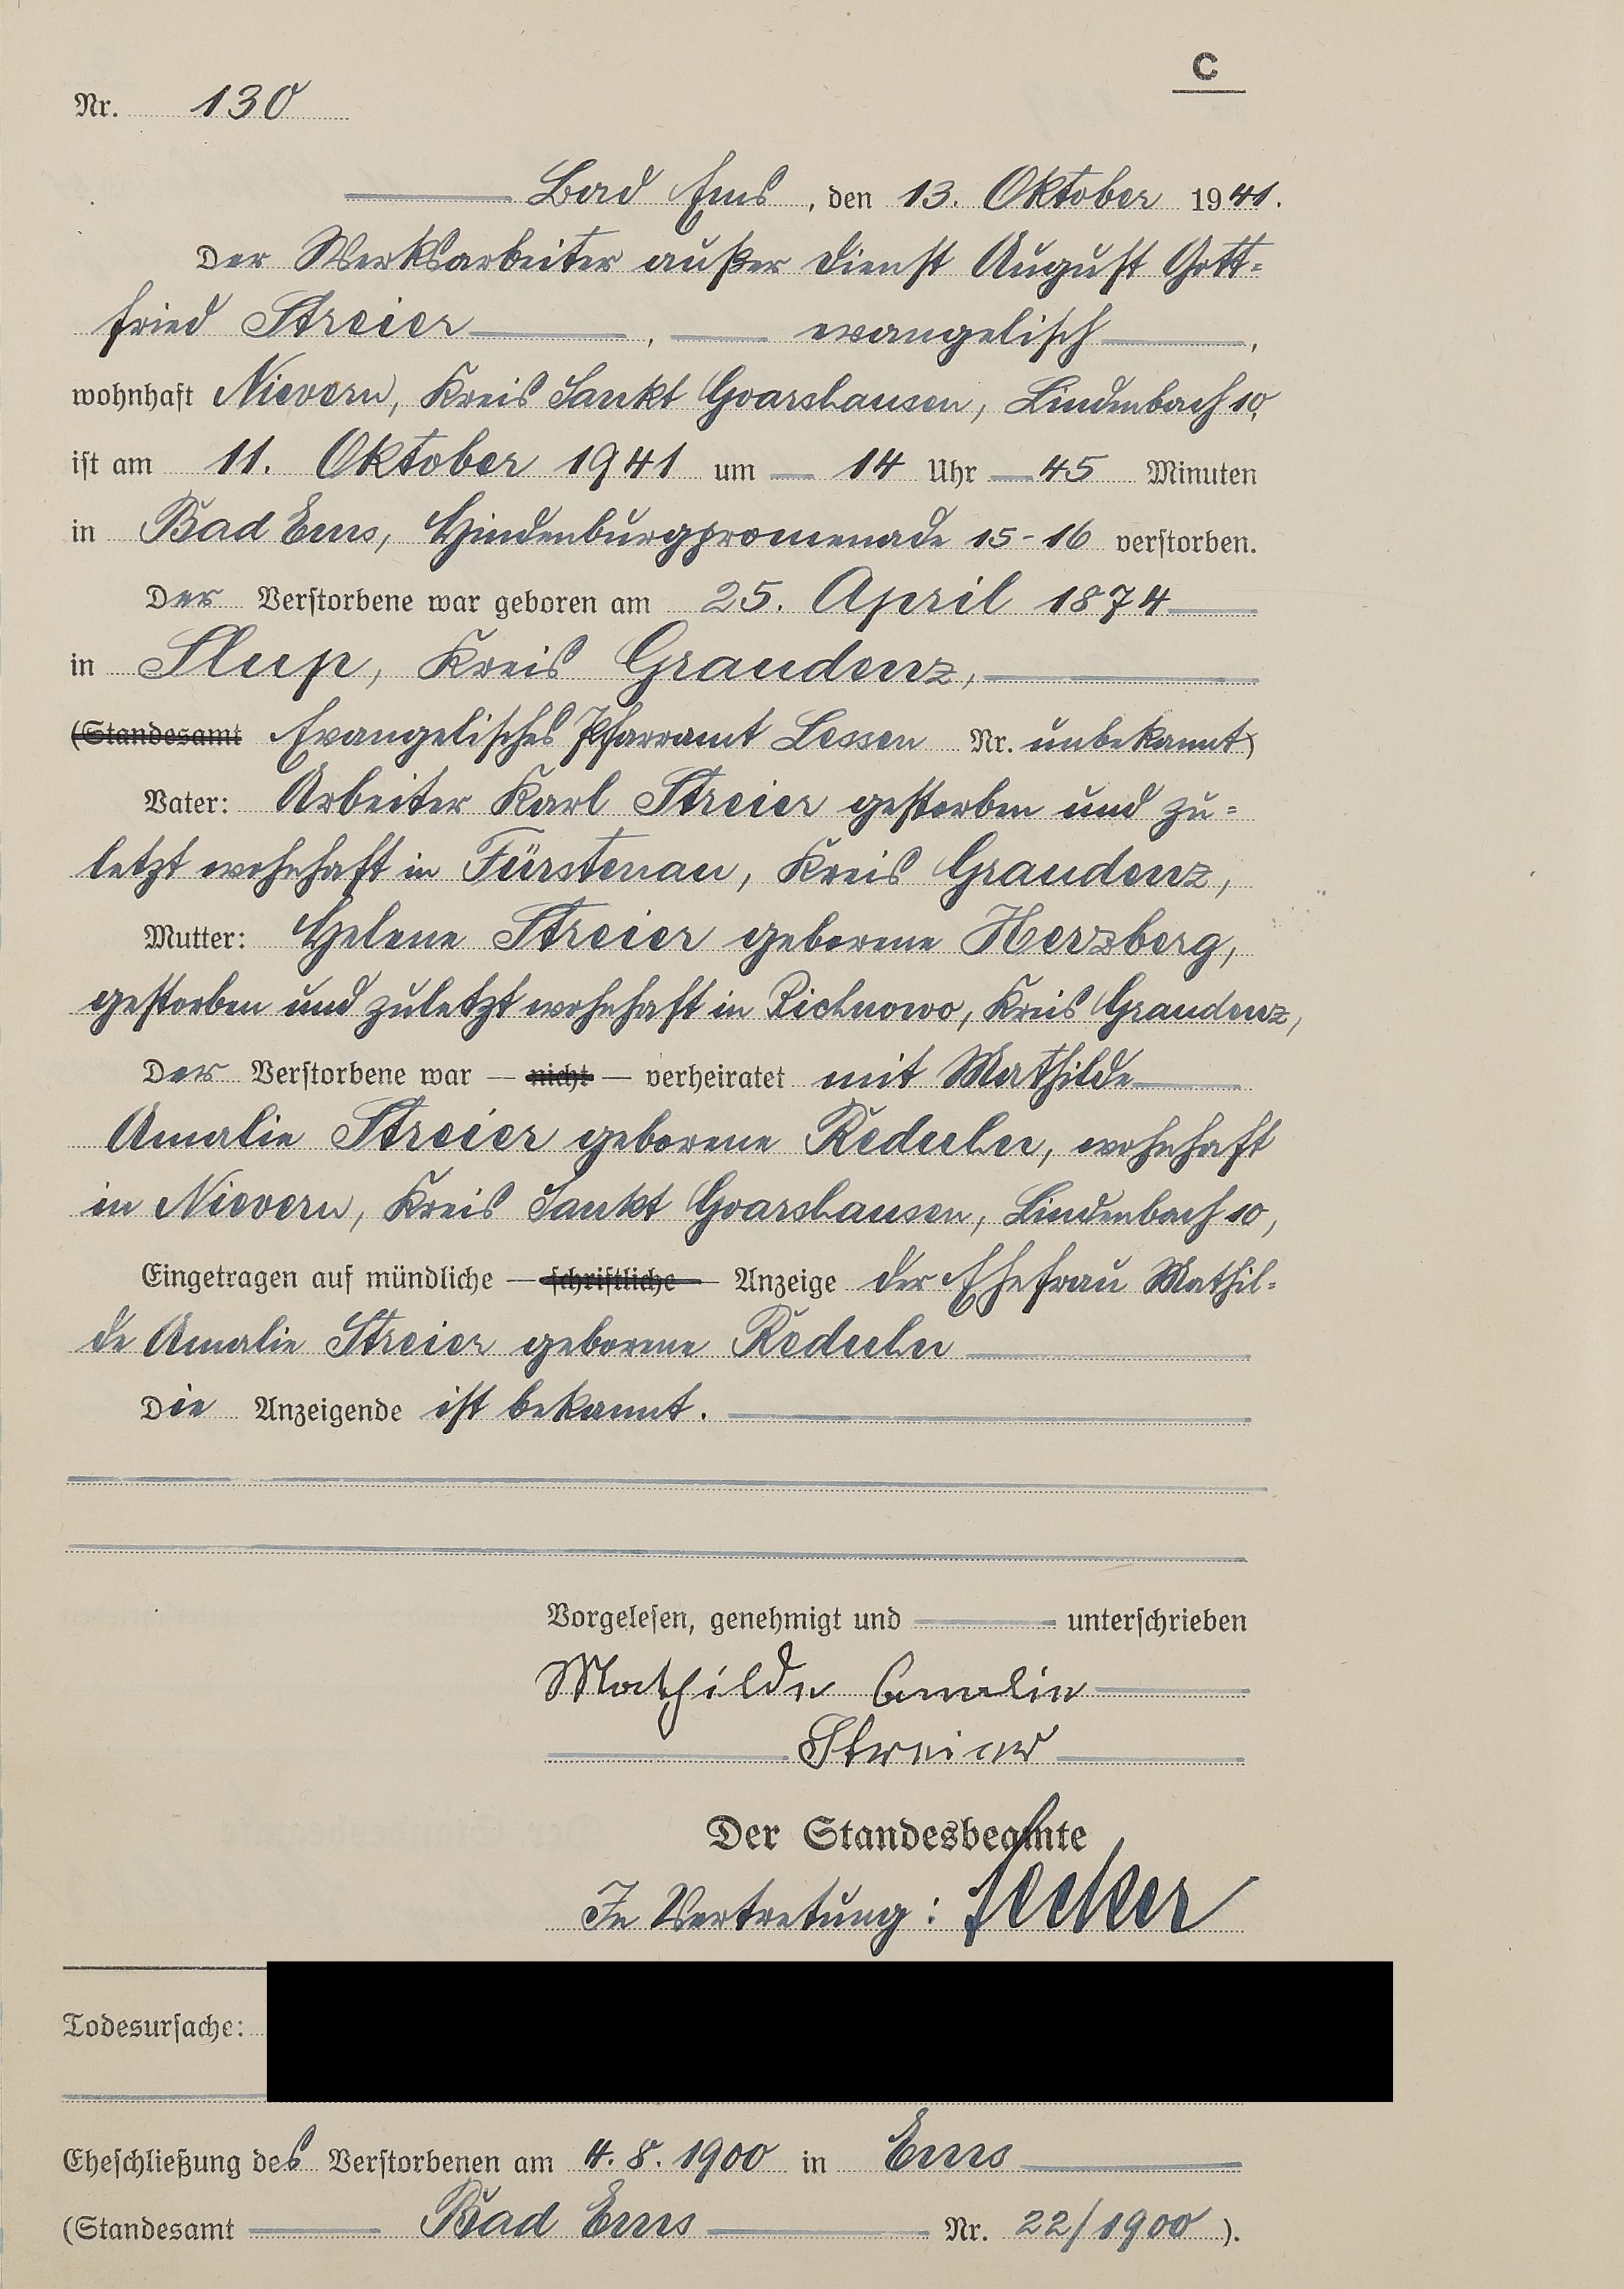 C
Nr. 130
Bad Ems, den 13. Oktober 1941.
Der Werksarbeiter außer Dienst August Gott=
fried Streier, evangelisch,
wohnhaft Nievern, Kreis Sankt Goarshausen, Lindenbach 10,
ist am 11. Oktober 1941 um 14 Uhr 45 Minuten
in Bad Ems, Hindenburgpromenade 15-16 verstorben.
Der Verstorbene war geboren am 25. April 1874
in Slup, Kreis Graudenz,
(Standesamt Evangelisches Pfarramt Lessen Nr. unbekannt)
Vater: Arbeiter Karl Streier gestorben und zu=
letzt wohnhaft in Fürstenau, Kreis Graudenz,
Mutter: Helene Streier geborene Herzberg,
gestorben und zuletzt wohnhaft in Richnowo, Kreis Graudenz,
Der Verstorbene war — nicht — verheiratet mit Mathilde
Amalie Streier geborene, wohnhaft
in Nievern, Kreis Sankt Goarshausen, Lindenbach 10,
Eingetragen auf mündliche — schriftliche — Anzeige der Ehefrau Mathil=
de Amalie Streier geborene
Die Anzeigende ist bekannt.
Vorgelesen, genehmigt und unterschrieben
Mathilde Amalie
Streier
Der Standesbeamte
In Vertretung:
Todesursache:
Eheschließung des Verstorbenen am 4. 8. 1900 in Ems
(Standesamt Bad Ems Nr. 22/1900).